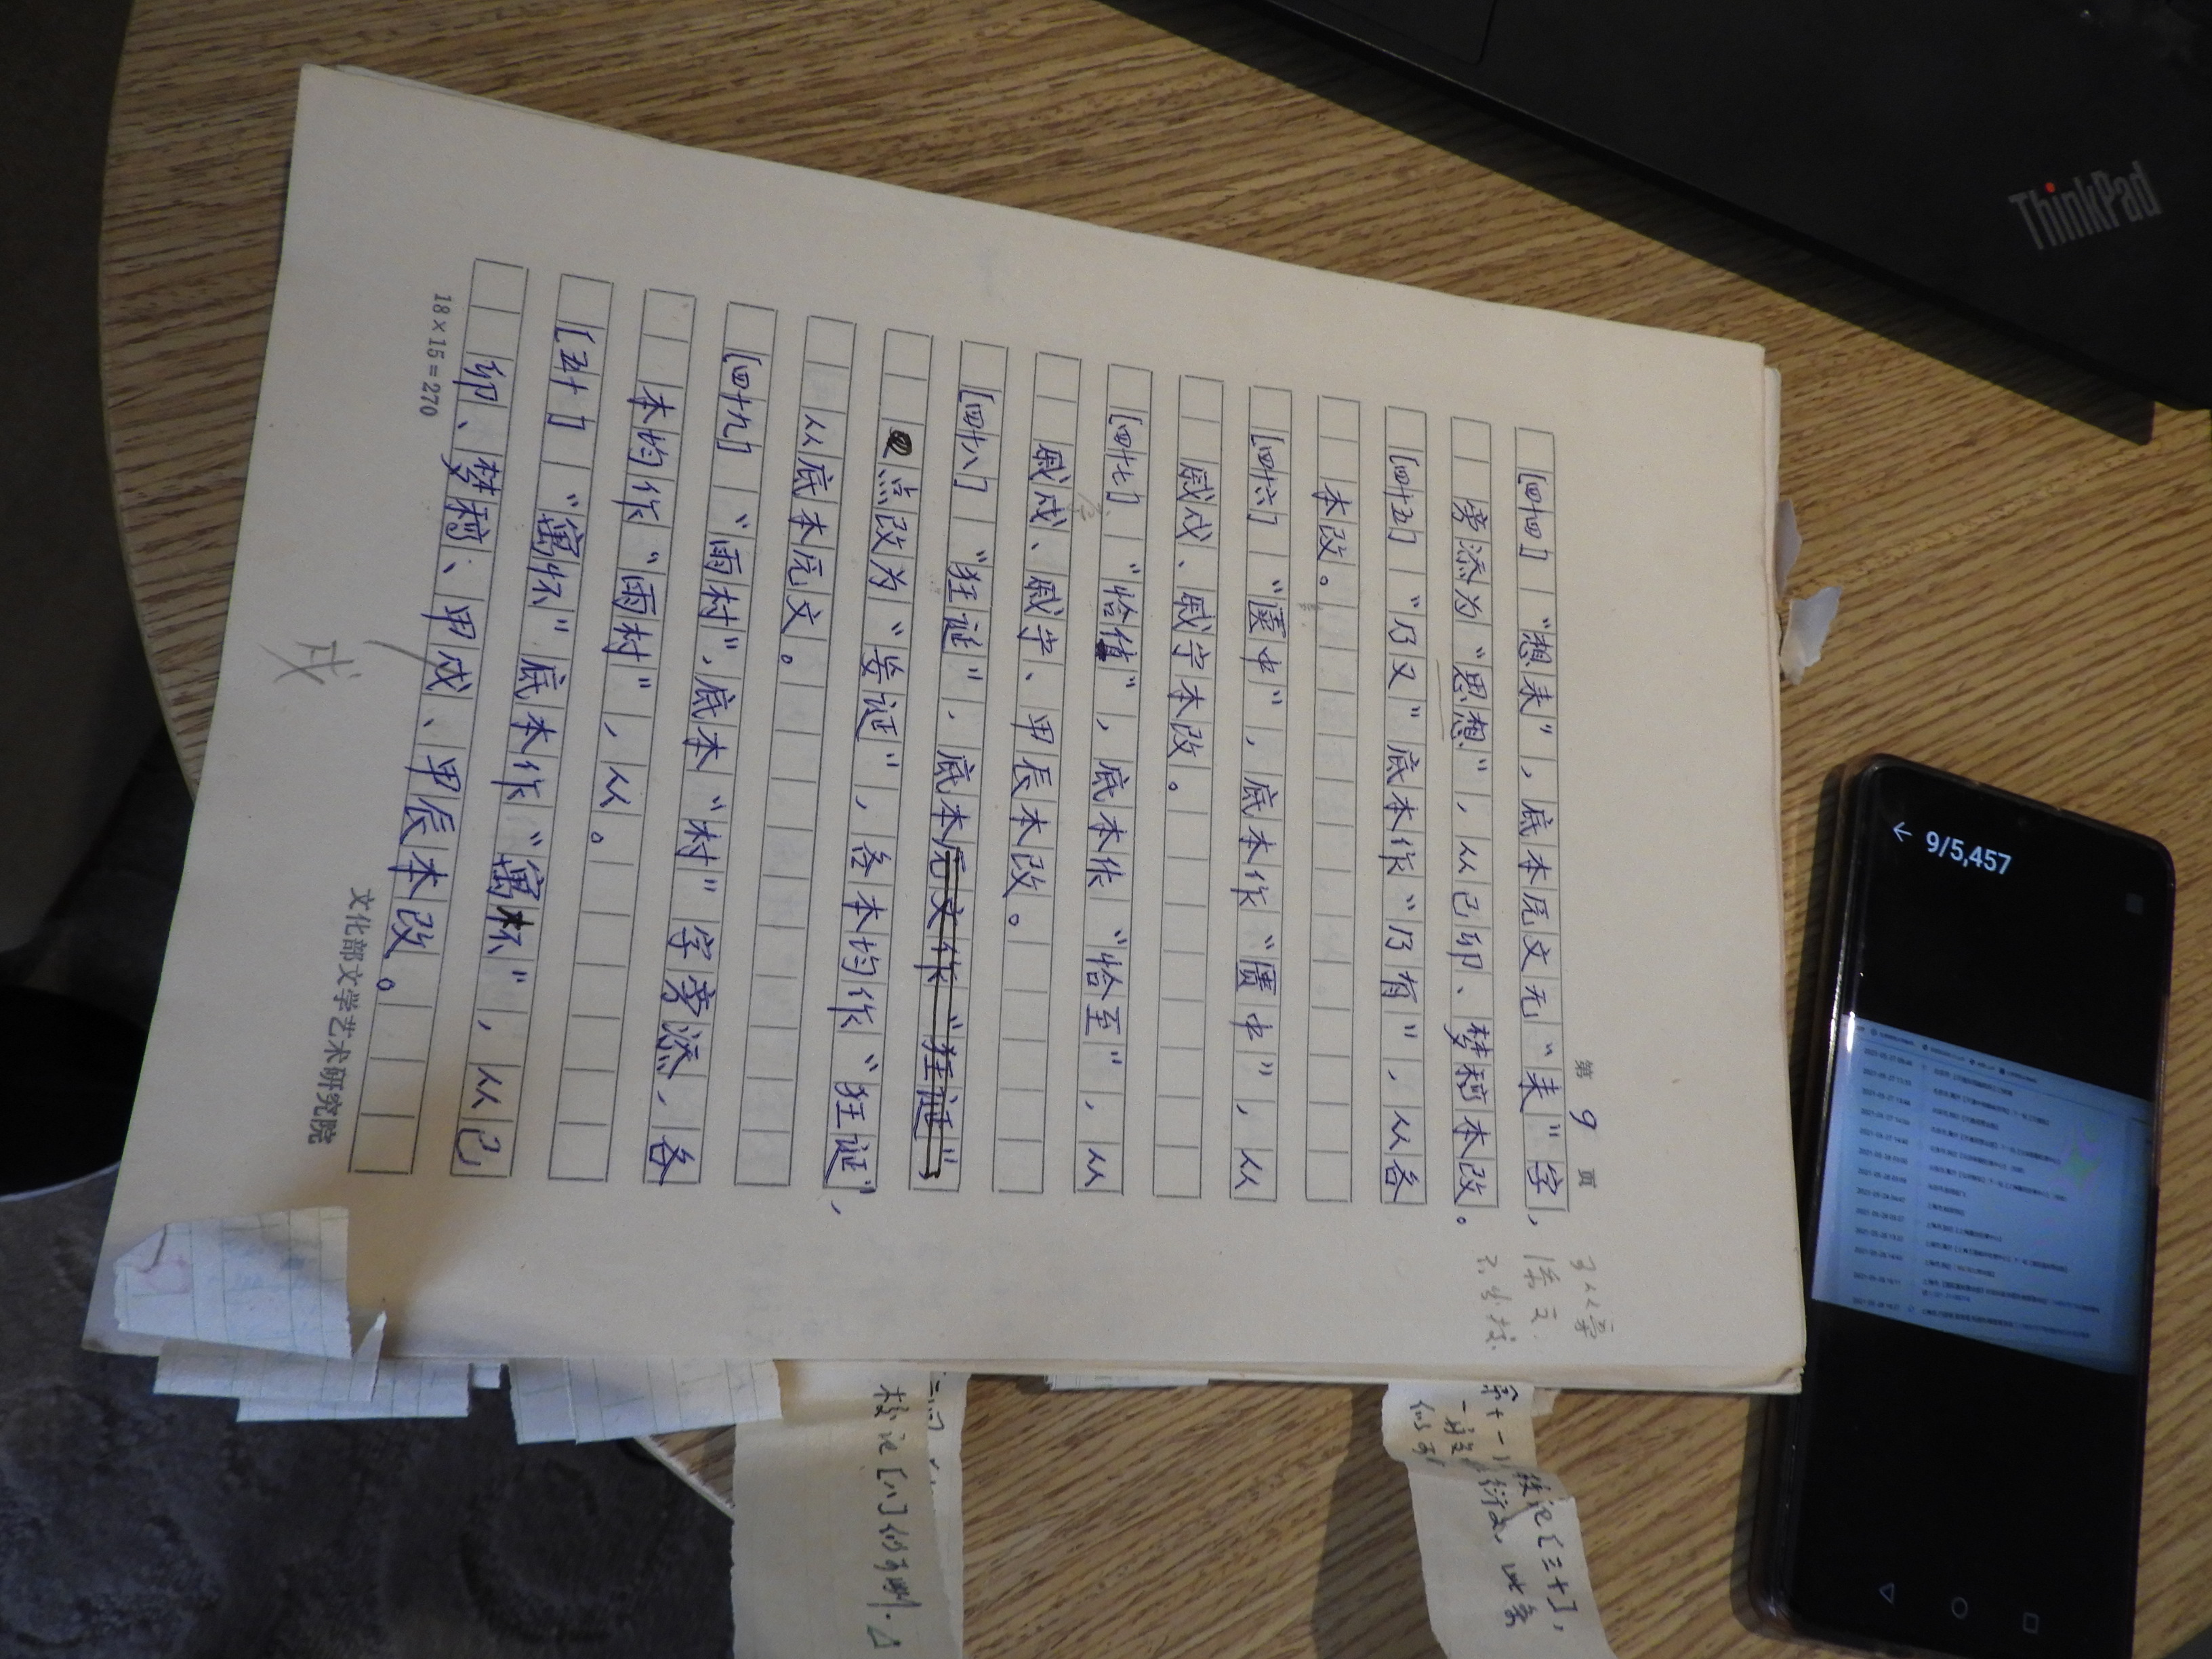 第 9 页
[四十四] “想来”，底本原文无“来”字，
旁添为“思想”，从己卯、梦稿本改。
[四十五] “乃又”底本作“乃有”，从各
本改。
[四十六] “匮中”，底本作“匱中”，从
戚戌、戚宁本改。
[四十七] “恰值”，底本作“恰至”，从
戚戌、戚宁、甲辰本改。
[四十八] “狂诞”，底本原文作“狂诞”，
点改为“妄诞”，各本均作“狂诞”，
从底本原文。
[四十九] “雨村”，底本“村”字旁添，各
本均作“雨村”，从。
[五十] “寓怀”底本作“寓杯”，从己
卯、梦稿、甲戌、甲辰本改。
戌
18×15=270
文化部文学艺术研究院
校记[八]似可删.
校记[三十],
ThinkPad
9/5,457